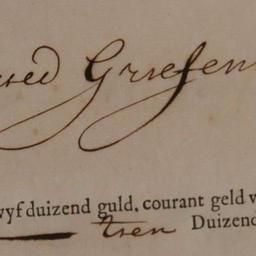 Griefen
wyf duizend guld. courant geld v
tien Duizend